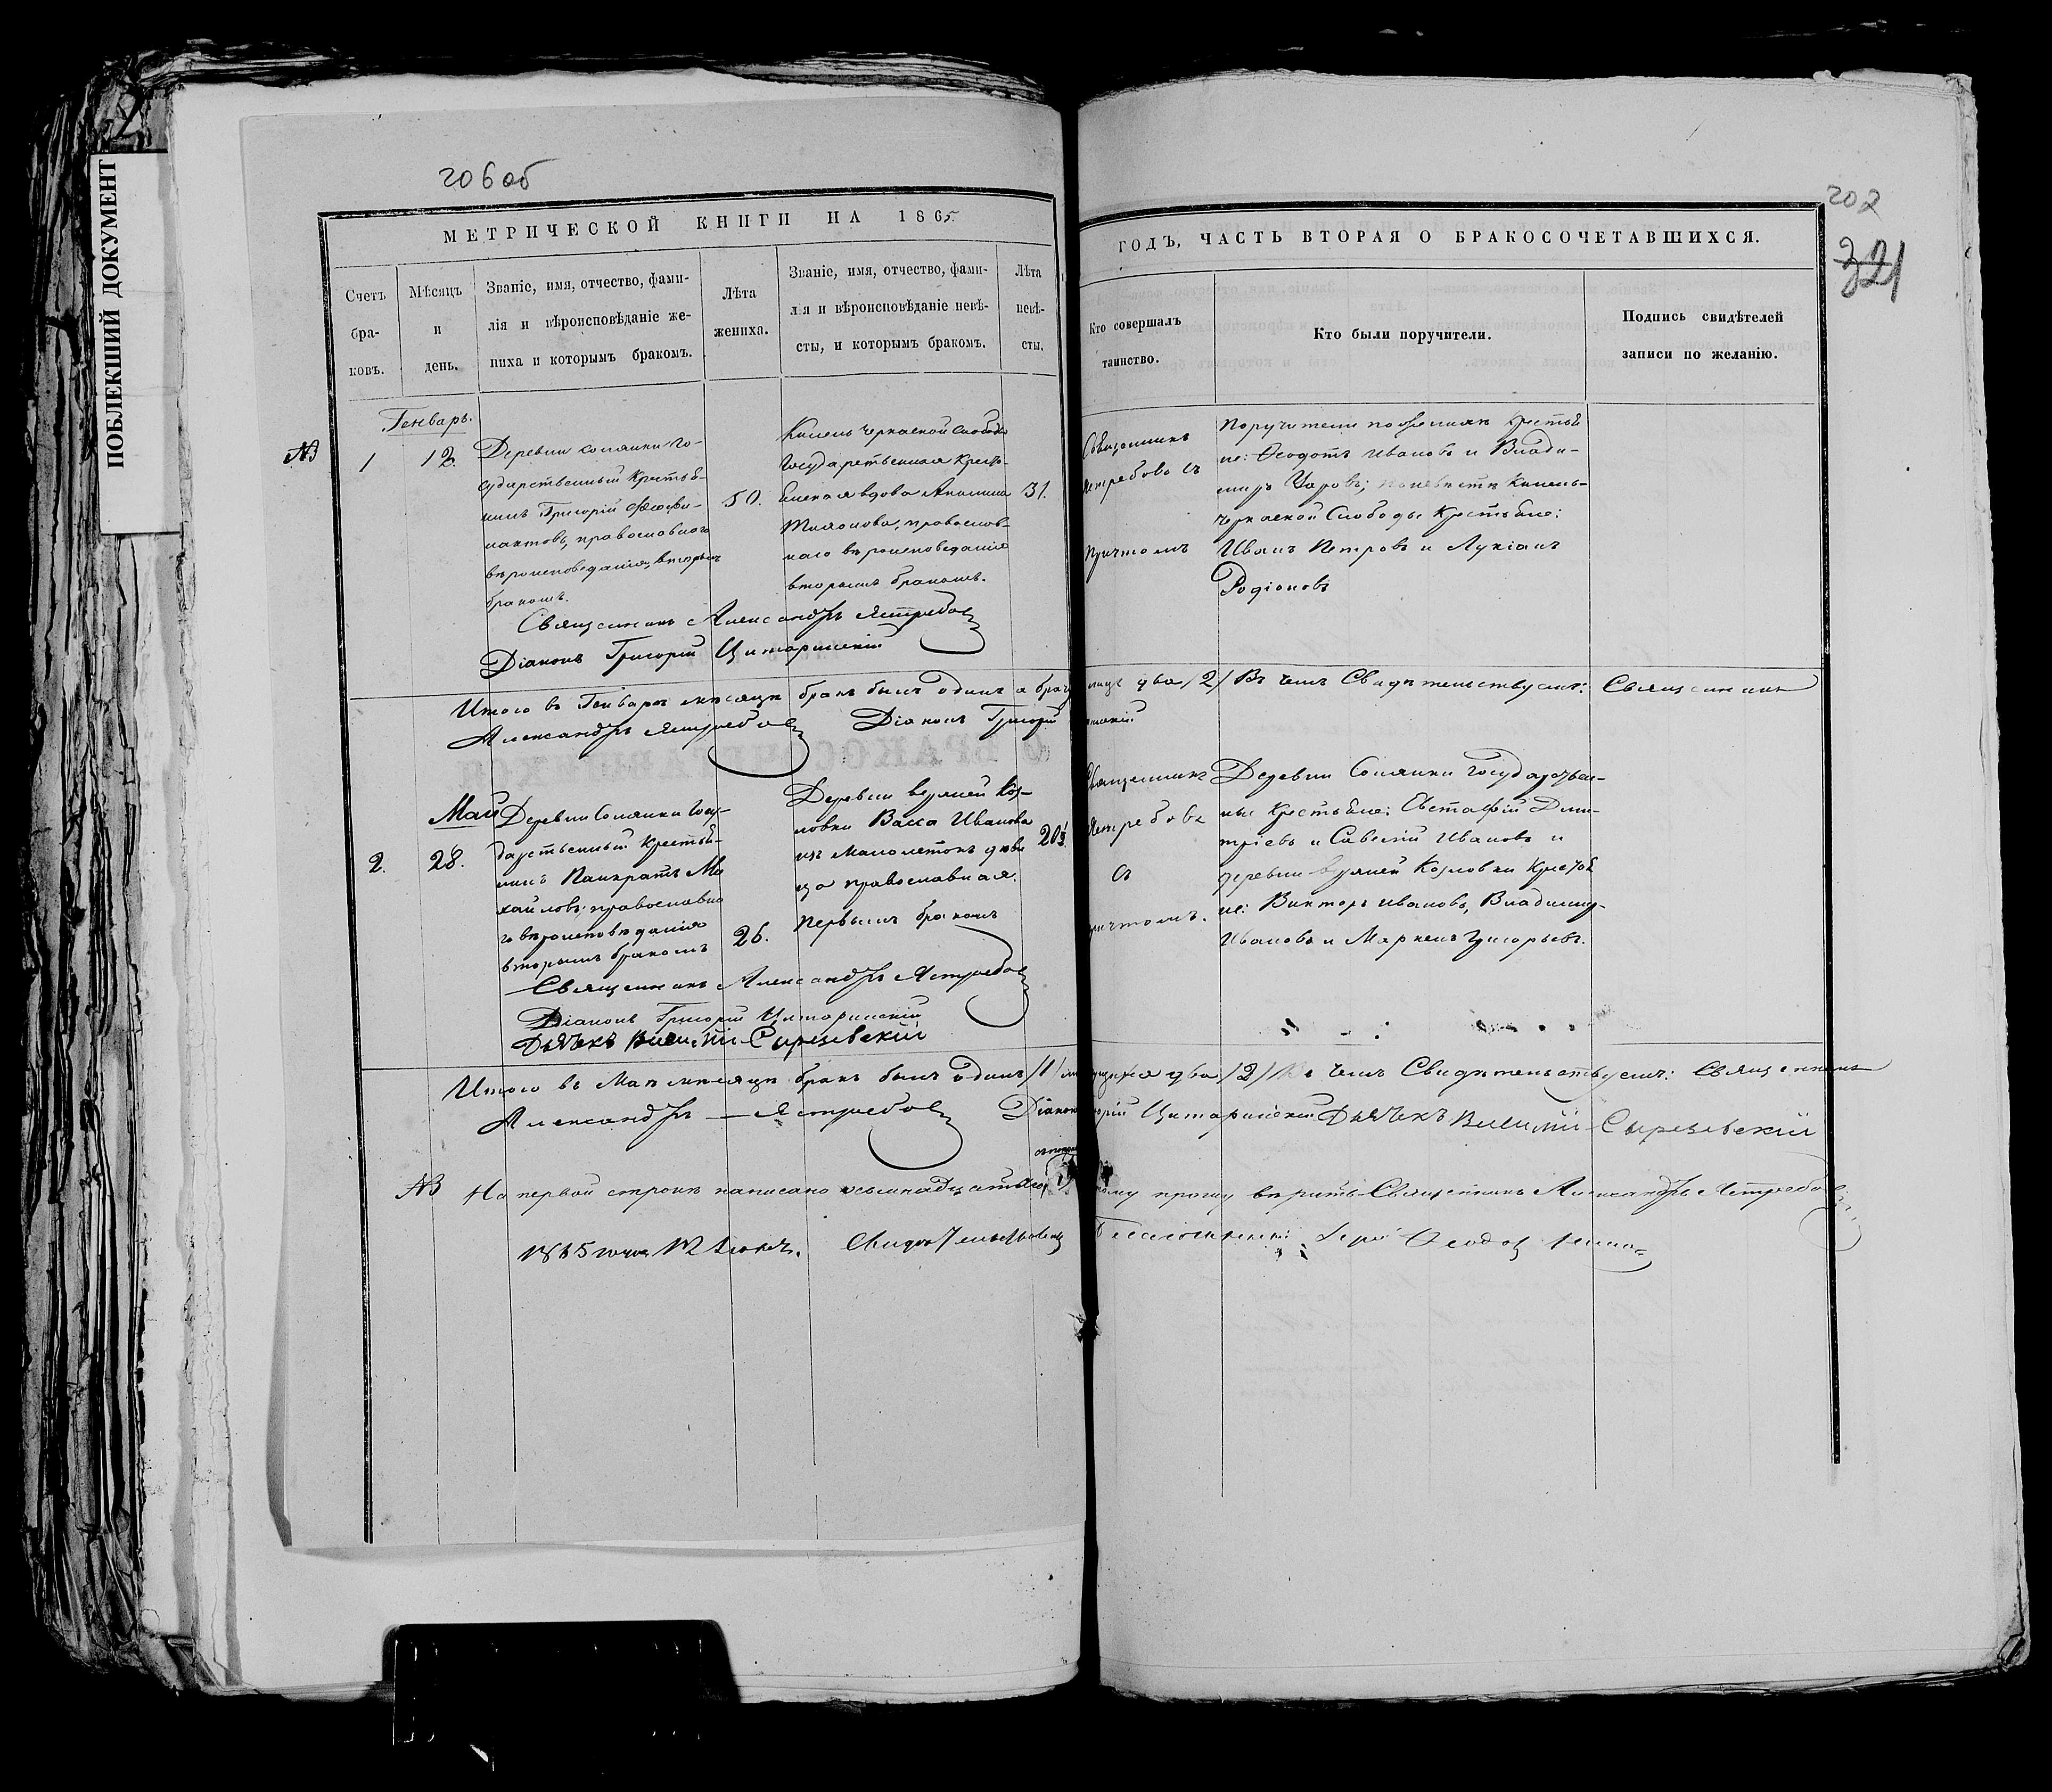 ПОБЛЕКШИЙ ДОКУМЕНТ
206об
202
321
МЕТРИЧЕСКОЙ КНИГИ НА 1865
ГОДЪ, ЧАСТЬ ВТОРАЯ О БРАКОСОЧЕТАВШИХСЯ.
Счетъ
бра-
ковъ.
Мѣсяцъ
и
день.
Званіе, имя, отчество, фами-
лія и вѣроисповѣданіе же-
ниха и которымъ бракомъ.
Лѣта
жениха.
Званіе, имя, отчество, фами-
лія и вѣроисповѣданіе невѣ-
сты, и которымъ бракомъ.
Лѣта
невѣ-
сты.
Кто совершалъ
таинство.
Кто были поручители.
Подпись свидѣтелей
записи по желанію.
Генварь.
NB
1
12.
Деревни Солянки го-
сударственный крестья-
нинъ Григорій
православнаго
вѣроисповеданія, вторымъ
бракомъ.
50.
Кинель Черкаской Слободы
Государственная крестья-
вдова Акилина
православ-
наго вѣроисповеданія
вторымъ бракомъ.
31.
Священникъ
Ястребовъ съ
Причтомъ
Поручители по женихѣ крестья
не: Ѳеодотъ Ивановъ и Влади-
миръ по невѣстѣ Кинель-
черкаской Слободы крестьяне:
Иванъ Петровъ и Лукіанъ
Родіоновъ
Священникъ Александръ Ястребовъ
Діаконъ Григорій
Итого въ Генварѣ мѣсяцѣ бракъ былъ одинъ а
два /2/ Въ чемъ Свидѣтельствуемъ: Священникъ
Александръ Ястребовъ Діаконъ Григорій
Май
2.
28.
Деревни Солянки Госу-
дарственный крестья-
нинъ Панкратъ Ми
хайловъ, православна
го вѣроисповѣданія
вторымъ бракомъ
26.
Деревни верхней Коз-
ловки Васса Иванова
изъ малолетокъ деви
ца православная.
Первымъ бракомъ
20½
Священникъ
Ястребовъ
съ
причтомъ.
Деревни Солянки Государствен-
ные крестьяне: Евстафій Дми-
тріевъ и Савелій Ивановъ и
деревни верхней Козловки крестья
не: Викторъ Ивановъ, Владимиръ
Ивановъ и Маркелъ Григорьевъ.
Священникъ Александръ Ястребовъ
Діаконъ Григорій
Дьячекъ
Итого въ Маѣ мѣсяцѣ бракъ былъ одинъ /1/
два /2/ Въ чемъ Свидѣтельствуемъ: Священникъ
Александръ Ястребовъ Діаконъ
Дьячекъ
NB На первой строкѣ написано
прошу вѣрить Священникъ Александръ Ястребовъ
1865 года